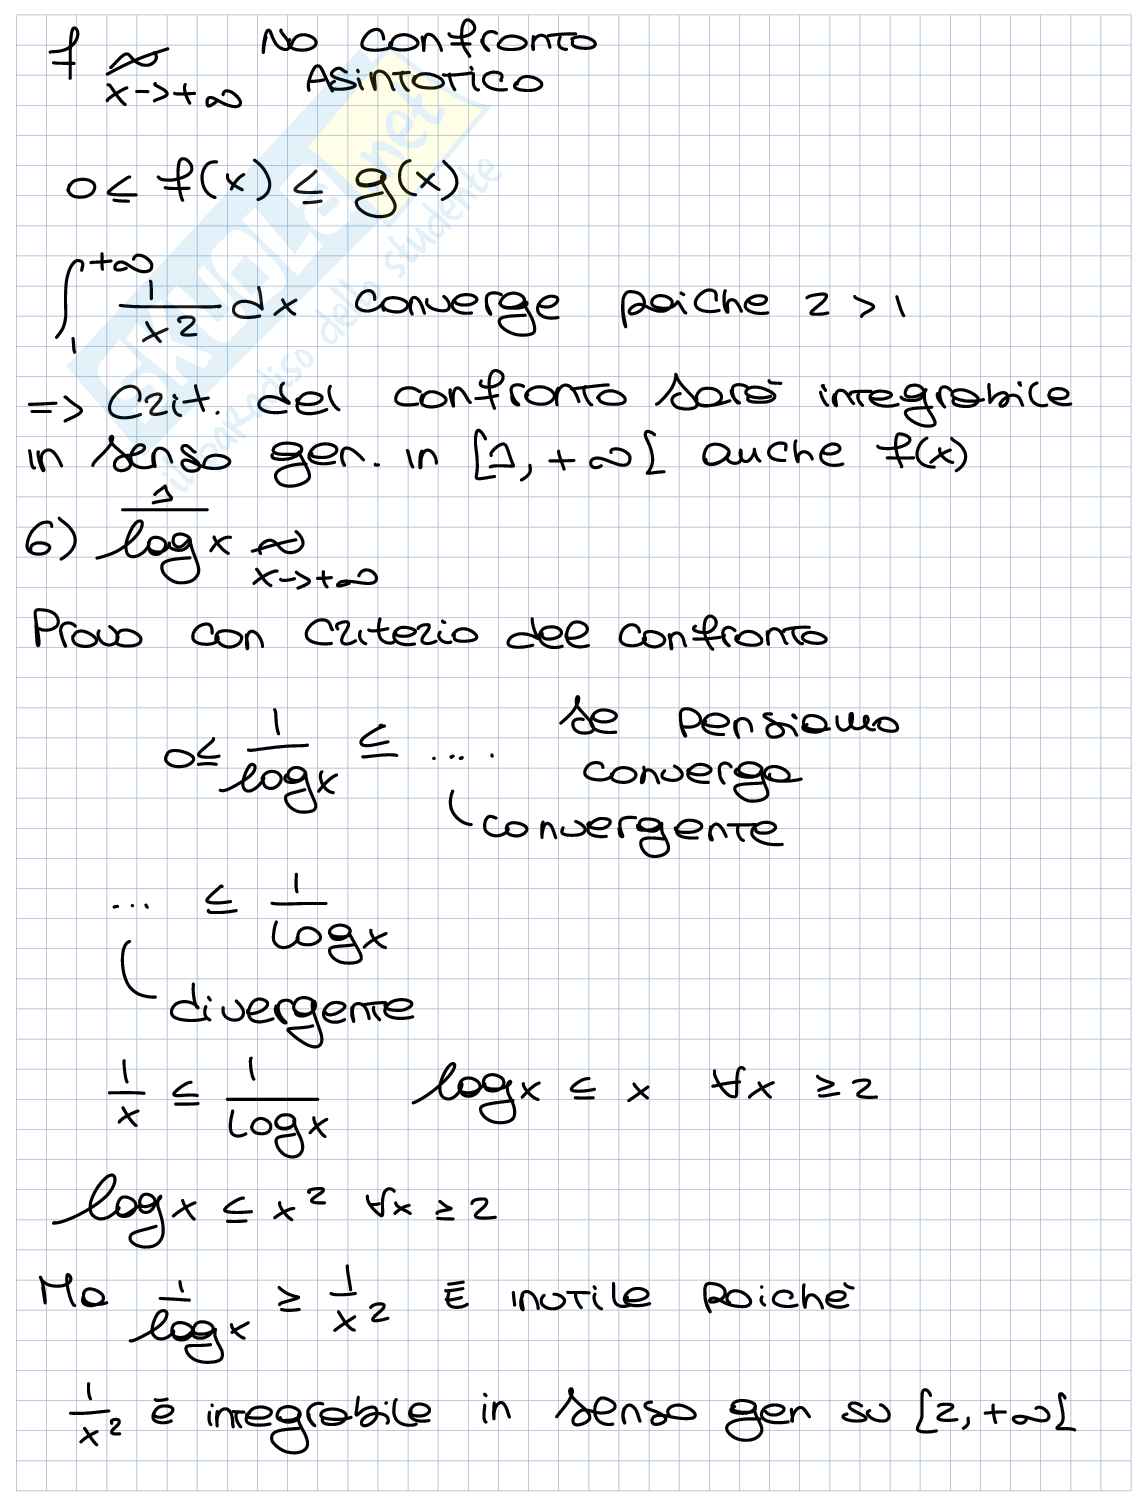 f ≁ No confronto
x→+∞ Asintotico
0 ≤ f(x) ≤ g(x)
∫₁^{+∞} 1/x² dx converge poiche 2 > 1
=> Crit. del confronto sarà integrabile
in senso gen. in [1, +∞[ anche f(x)
6) 1/log x ≁
x→+∞
Provo con criterio del confronto
0 ≤ 1/log x ≤ .... se pensiamo
converga
convergente
... ≤ 1/log x
divergente
1/x ≤ 1/log x log x ≤ x ∀x ≥ 2
log x ≤ x² ∀x ≥ 2
Ma 1/log x ≥ 1/x² È inutile poichè
1/x² è integrabile in senso gen su [2, +∞[
skuola.net
il paradiso dello studente